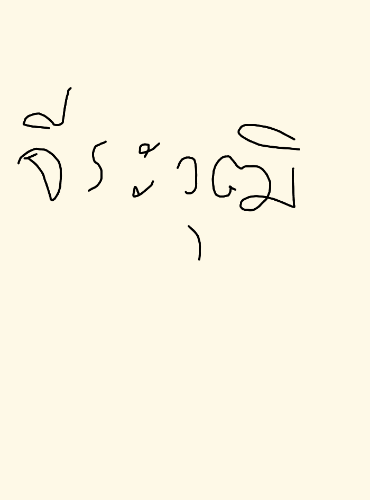 จีระวุฒิ